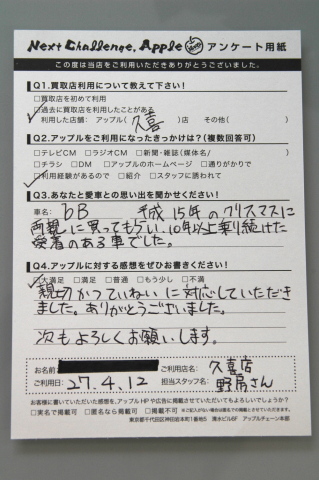 Next Challenge. Apple アンケート用紙
この度は当店をご利用いただきありがとうございました。
Q1.買取店利用について教えて下さい!
□買取店を初めて利用
□過去に買取店を利用したことがある
利用した店舗: アップル( 久喜 )店 その他( )
Q2.アップルをご利用になったきっかけは?(複数回答可)
□テレビCM □ラジオCM □新聞・雑誌(媒体名/ )
□チラシ □DM □アップルのホームページ □通りがかりで
□利用経験があるので □紹介 □スタッフに誘われて
Q3.あなたと愛車との思い出を聞かせください!
車名: bB 平成15年のクリスマスに
両親に買ってもらい、10年以上乗り続けた
愛着のある車でした。
Q4.アップルに対する感想をぜひお書きください!
□大満足 □満足 □普通 □もう少し □不満
親切かつていねいに対応していただき
ました。ありがとうございました。
次もよろしくお願いします。
お名前: ご利用店名: 久喜店
ご利用日: 27.4.12 担当スタッフ名: 野居さん
お客様に書いていただいた感想を、アップルHPや広告に掲載させていただいてもよろしいでしょうか?
□実名で掲載可 □匿名なら掲載可 □掲載不可 ※ご記入がない場合は匿名での掲載とさせていただきます。
東京都千代田区神田岩本町1番地5 清水ビル6F アップルチェーン本部